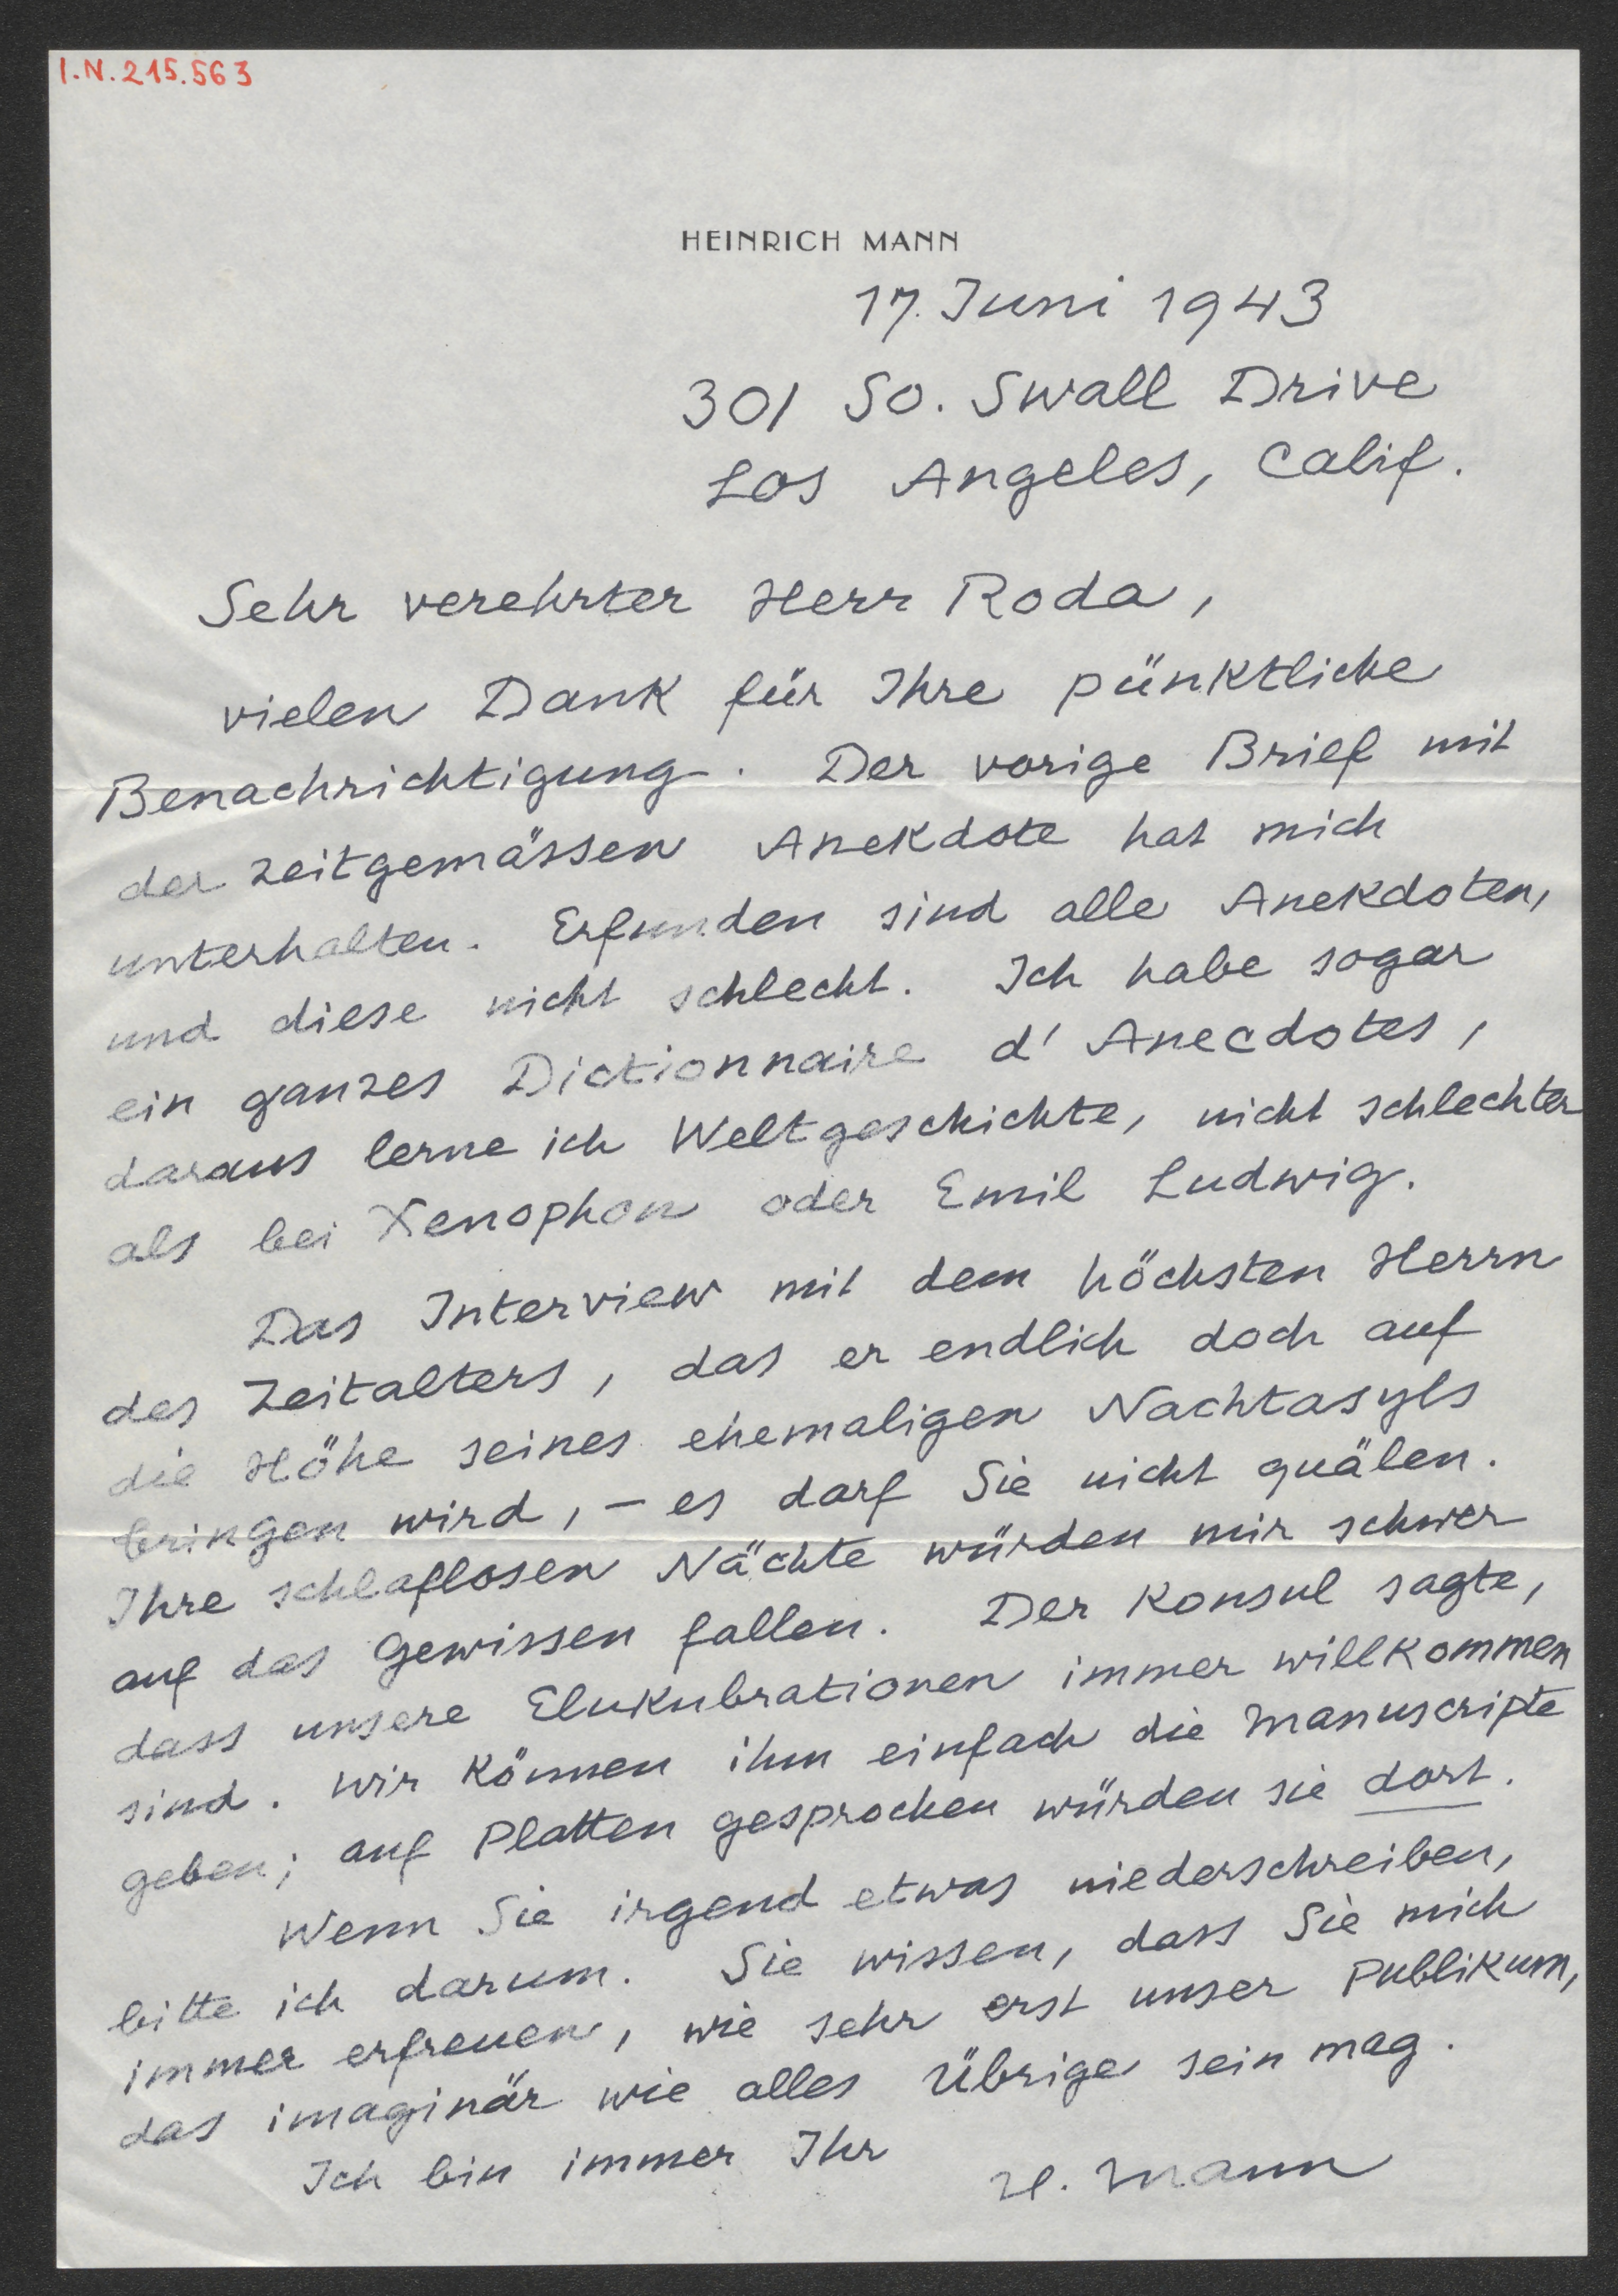 I.N. 215.563
HEINRICH MANN
17. Juni 1943
301 So. Swall Drive
Los Angeles, Calif.
Sehr verehrter Herr Roda,
vielen Dank für Ihre pünktliche
Benachrichtigung. Der vorige Brief mit
der zeitgemässen Anekdote hat mich
unterhalten. Erfunden sind alle Anekdoten,
und diese nicht schlecht. Ich habe sogar
ein ganzes Dictionnaire d'Anecdotes,
daraus lerne ich Weltgeschichte, nicht schlechter
als bei Xenophon oder Emil Ludwig.
Das Interview mit dem höchsten Herrn
des Zeitalters, das er endlich doch auf
die Höhe seines ehemaligen Nachtasyls
bringen wird, – es darf Sie nicht quälen.
Ihre schlaflosen Nächte würden mir schwer
auf das Gewissen fallen. Der Konsul sagte,
dass unsere Elukubrationen immer willkommen
sind. Wir können ihm einfach die Manuscripte
geben; auf Platten gesprochen würden sie dort.
Wenn Sie irgend etwas niederschreiben,
bitte ich darum. Sie wissen, dass Sie mich
immer erfreuen, wie sehr erst unser Publikum,
das imaginär wie alles Übrige sein mag.
Ich bin immer Ihr
H. Mann